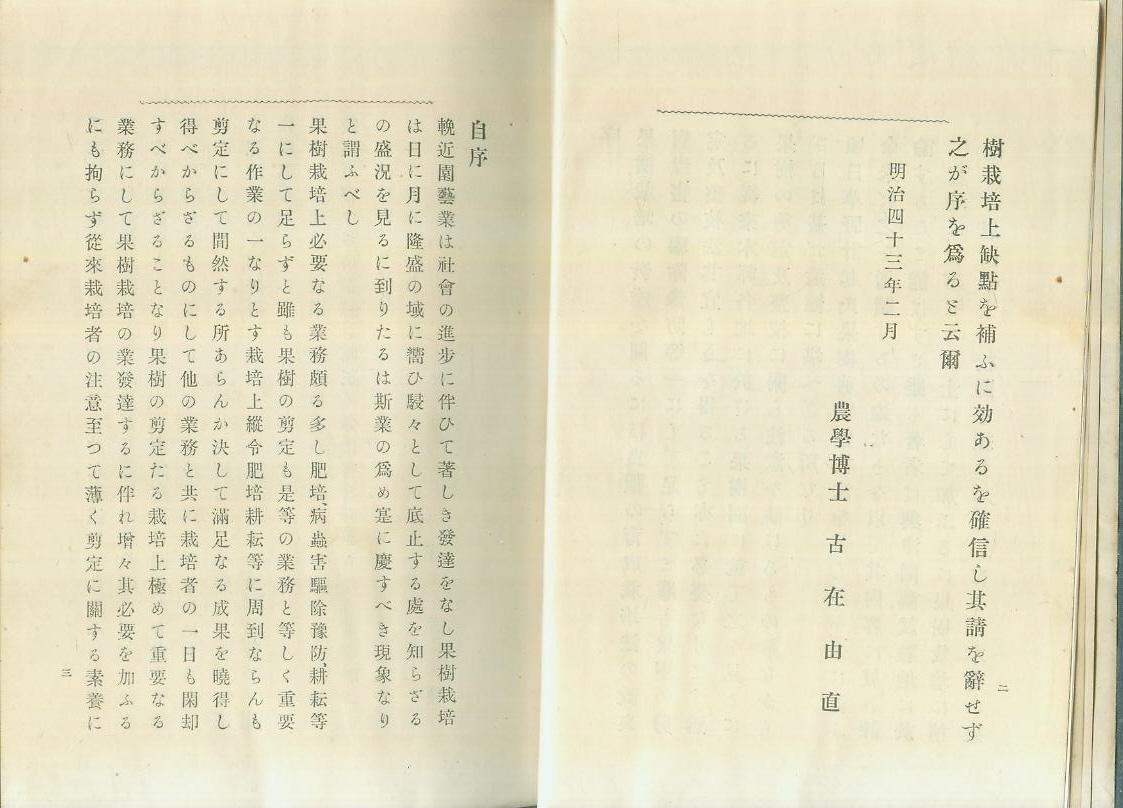 二
樹栽培上缺點を補ふに効あるを確信し其請を辭せず
之が序を爲ると云爾
明治四十三年二月
農學博士 古在由直
自序
輓近園藝業は社會の進步に伴ひて著しき發達をなし果樹栽培
は日に月に隆盛の域に嚮ひ駸々として底止する處を知らざる
の盛況を見るに到りたるは斯業の爲め寔に慶すべき現象なり
と謂ふべし
果樹栽培上必要なる業務頗る多し肥培、病蟲害驅除豫防、耕耘等
一にして足らずと雖も果樹の剪定も是等の業務と等しく重要
なる作業の一なりとす栽培上縱令肥培耕耘等に周到ならんも
剪定にして間然する所あらんか決して滿足なる成果を曉得し
得べからざるものにして他の業務と共に栽培者の一日も閑却
すべからざることなり果樹の剪定たる栽培上極めて重要なる
業務にして果樹栽培の業發達するに伴れ增々其必要を加ふる
にも拘らず從來栽培者の注意至つて薄く剪定に關する素養に
三